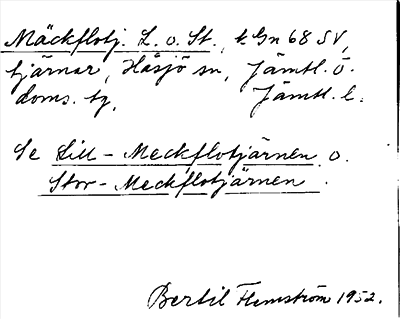 Mäckflotj. L. o. St., t. Gn 68 SV,
tjärnar, Håsjö sn, Jämtl. ö.
doms. tg, Jämtl. l.
Se Lill-Meckflotjärnen o.
Stor-Meckflotjärnen.
Bertil Flemström 1952.